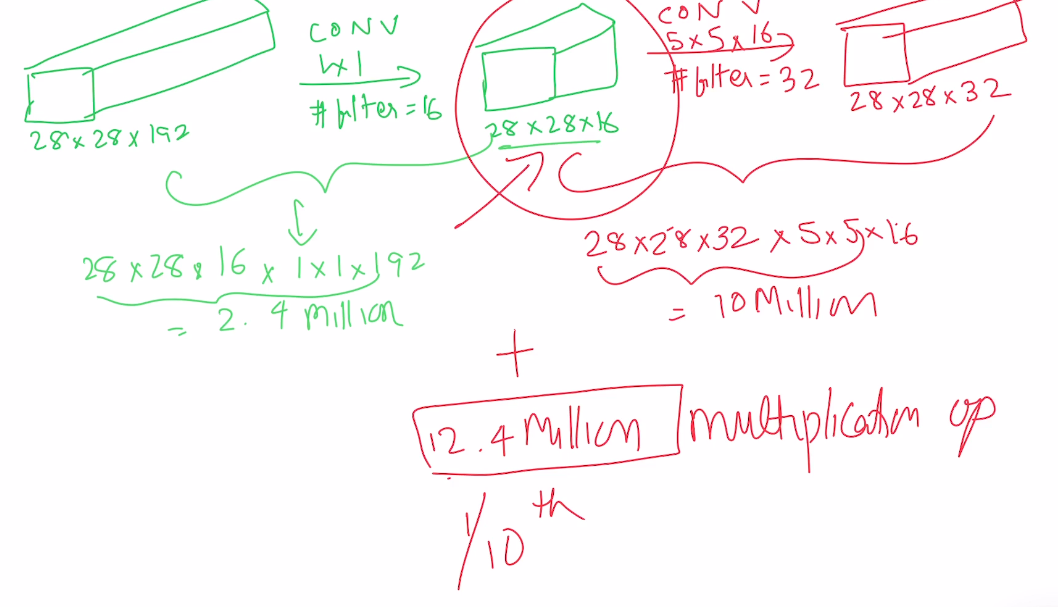 CONV
1x1
# filter = 16
28 x 28 x 192
28 x 28 x 16
CONV
5x5x16
# filter = 32
28 x 28 x 32
28 x 28 x 16 x 1x1x192
= 2.4 Million
28 x 28 x 32 x 5x5x16
= 10 Million
+
12.4 Million multiplication op
1/10 th